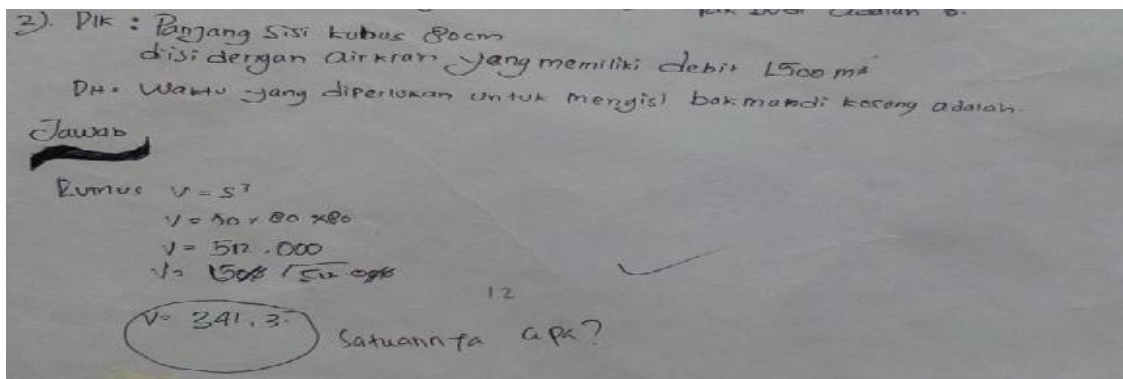 2). Dik : Panjang Sisi kubus 80cm
disi dengan airkran yang memiliki debit 1500 m
Dit. Waktu yang diperlukan untuk mengisi bakmandi kosong adalah.
Jawab
Rumus V = S³
V = 80 x 80 x80
V = 512.000
V= 1500 / 512.000
12
V= 341,3
Satuannya apa?